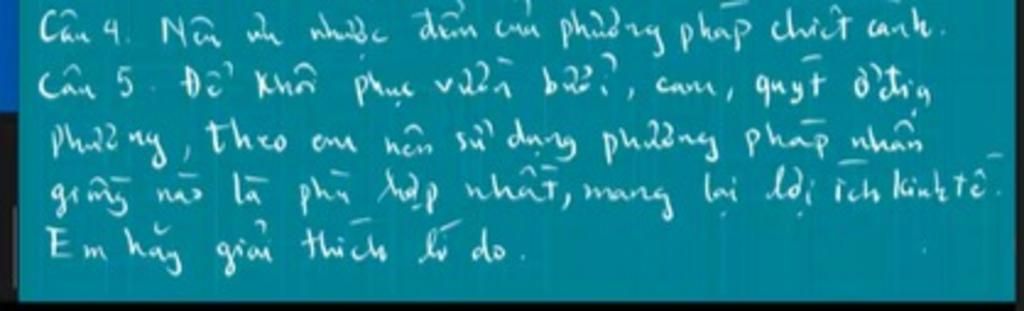 Câu 4. Nêu ưu nhược điểm của phương pháp chiết cành.
Câu 5. Để khôi phục vườn bưởi, cam, quýt ở địa
phương, theo em nên sử dụng phương pháp nhân
giống nào là phù hợp nhất, mang lại lợi ích kinh tế.
Em hãy giải thích lí do.